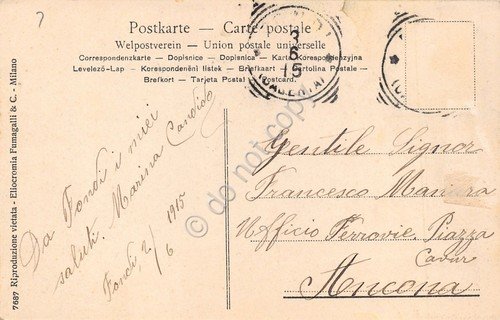 7
Postkarte – Carte postale
Welpostverein – Union postale universelle
Correspondenzkarte – Dopisnice – Dopisnica – Karta Korespondenzyjna
Levelezö-Lap – Korespondenčni listek – Briefkaart – Cartolina Postale –
Brefkort – Tarjeta Postal – Postcard.
3
6
15
(CASERTA)
do not copy
Da Fondi i miei
saluti. Marina Candido
Fondi, 2/6 1915
Gentile Signor
Francesco
Ufficio Ferrovie. Piazza
Cavur
Ancona
7687 Riproduzione vietata - Eliocromia Fumagalli & C. - Milano